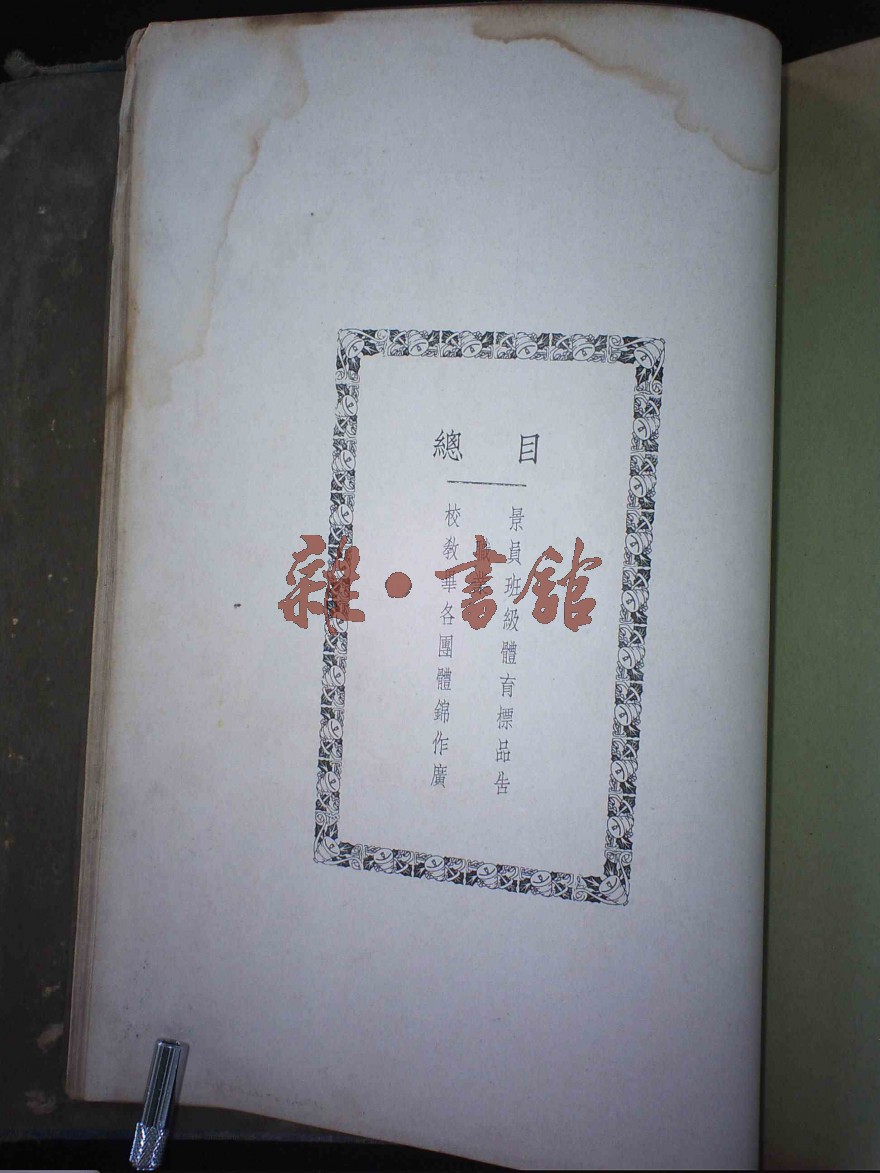 總目
校景
教職員
畢業班
各級
團體
體育
錦標
作品
廣告
雜·書館